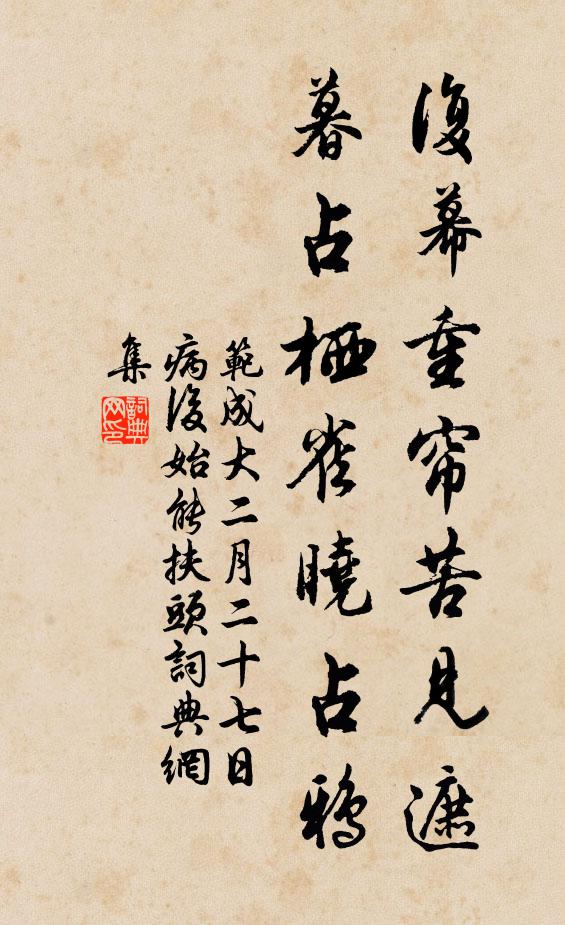 復幕重帘苦見遮
暮占栖雀曉占鴉
範成大二月二十七日
病後始能扶頭詞典網
集
詞典
网印